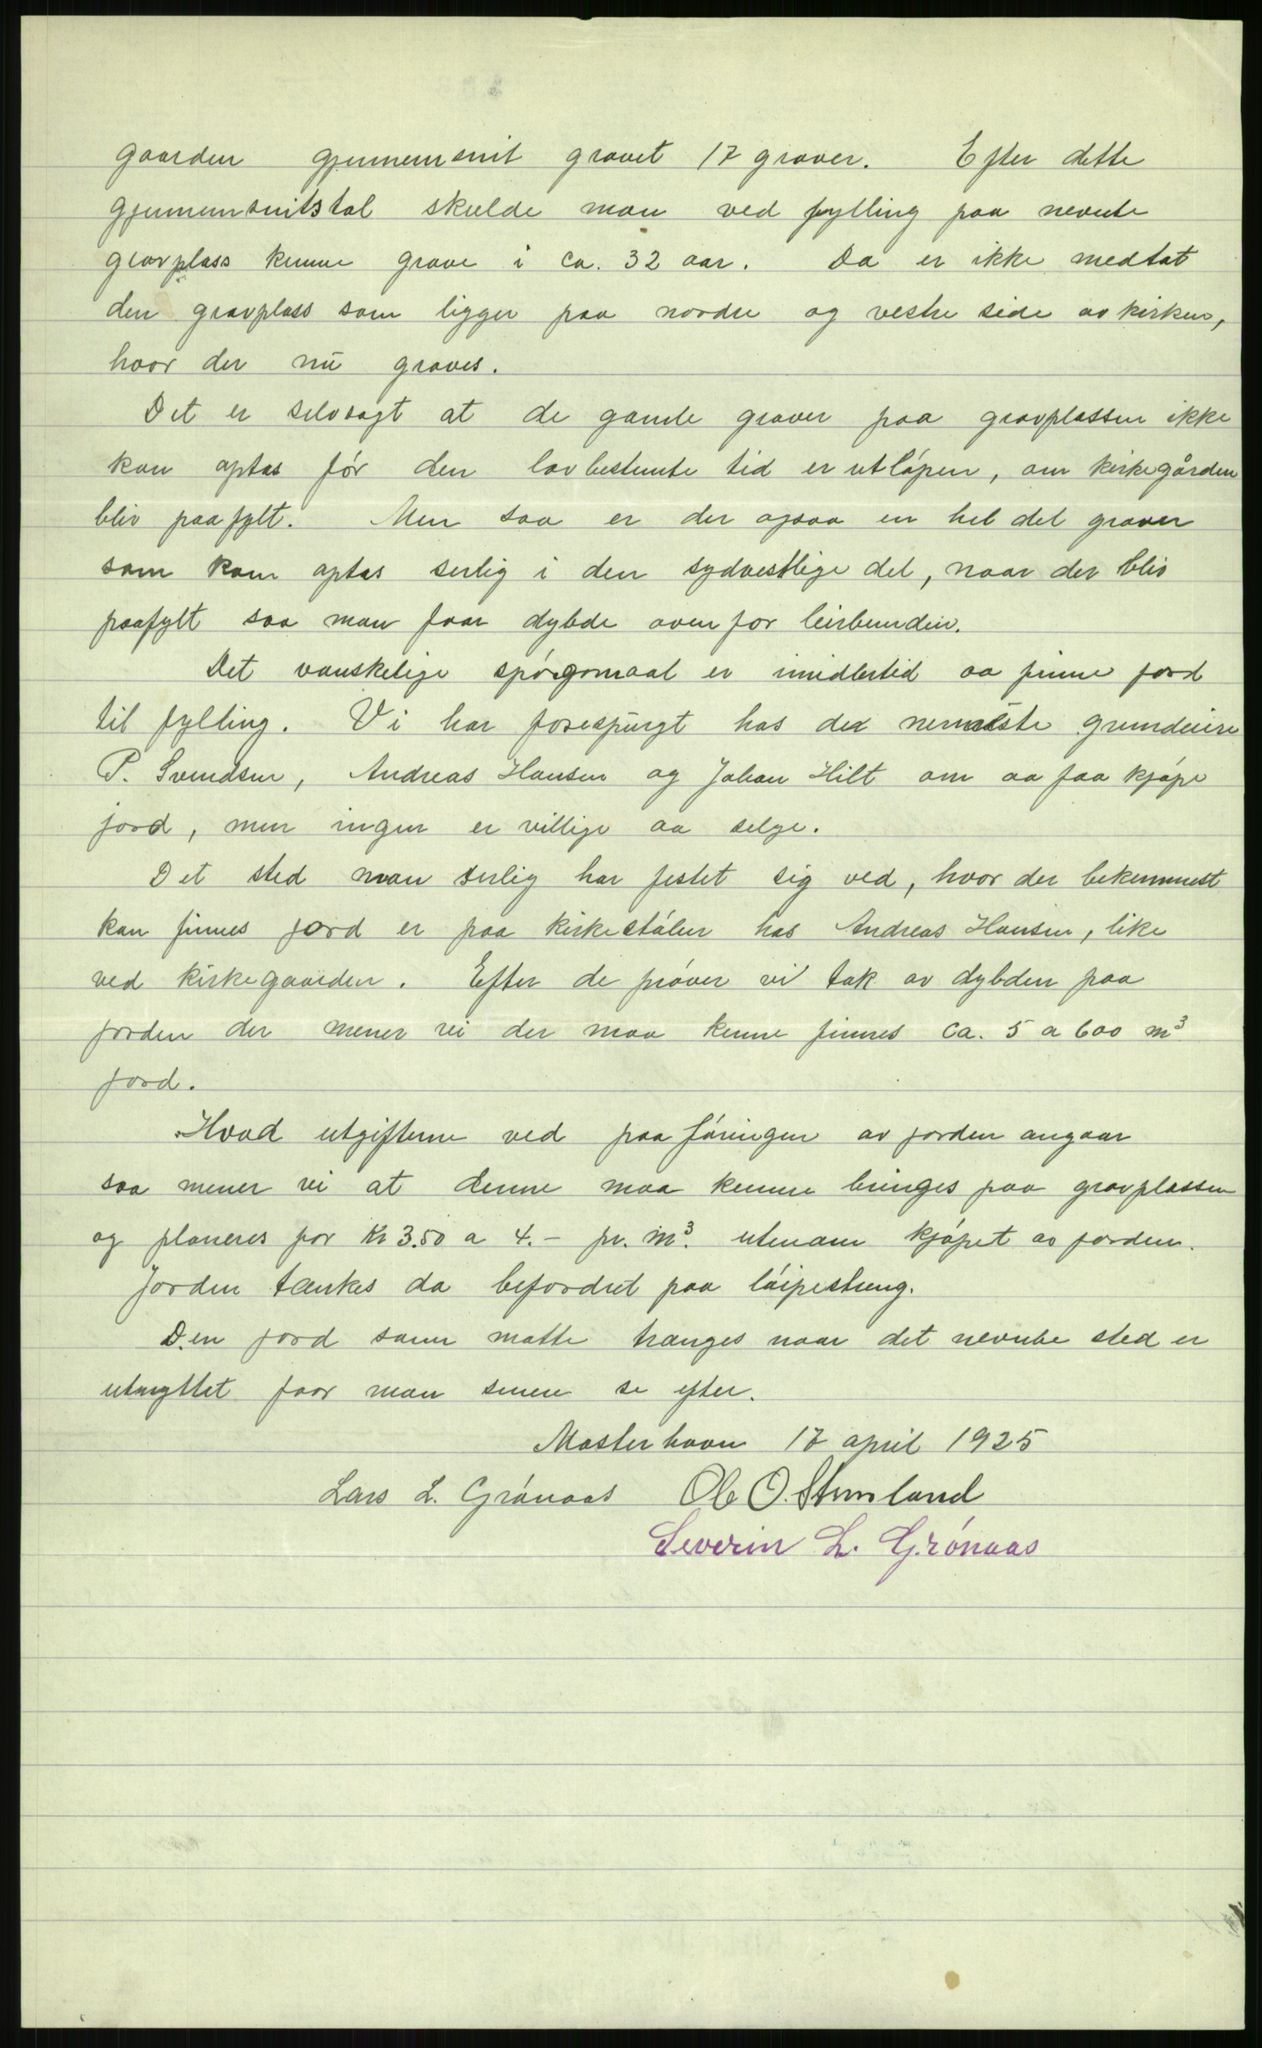 gaarden gjennemsnit gravet 17 graver. Efter dette
gjennemsnitstal skulde man ved fylling paa nevnte
gravplass kunne grave i ca. 32 aar. Da er ikke medtat
den gravplass som ligger paa nordre og vestre side av kirken,
hvor der nu graves.
Det er selvsagt at de gamle graver paa gravplassen ikke
kan optas før den lovbestemte tid er utløpen, om kirkegården
bliv paafylt. Men saa er der ogsaa en hel del graver
som kan optas serlig i den sydvestlige del, naar der bliv
paafylt saa man faar dybde ovenfor leirbunden.
Det vanskelige spørgsmaal er imidlertid aa finne jord
til fylling. Vi har forespurgt hos de nermeste grundeiere
P. Svendsen, Andreas Hansen og Johan Hilt om aa faa kjøpe
jord, men ingen er villige aa selge.
Det sted man serlig har festet sig ved, hvor der bekvemmest
kan finnes jord er paa kirkestølen hos Andreas Hansen, like
ved kirkegaarden. Efter de prøver vi tok av dybden paa
jorden der mener vi der maa kunne finnes ca. 5 a 600 m³
jord.
Hvad utgifterne ved paaføringen av jorden angaar
saa mener vi at denne maa kunne bringes paa gravplassen
og planeres for Kr 3.50 a 4.- pr. m³. utenom kjøpet av jorden.
Jorden tænkes da befordret paa løipestreng.
Den jord som matte trænges naar det nevnte sted er
utnyttet faar man senere se efter.
Mosterhavn 17 april 1925
Lars L. Grønaas Ole O. Stumland
Severin L. Grønaas